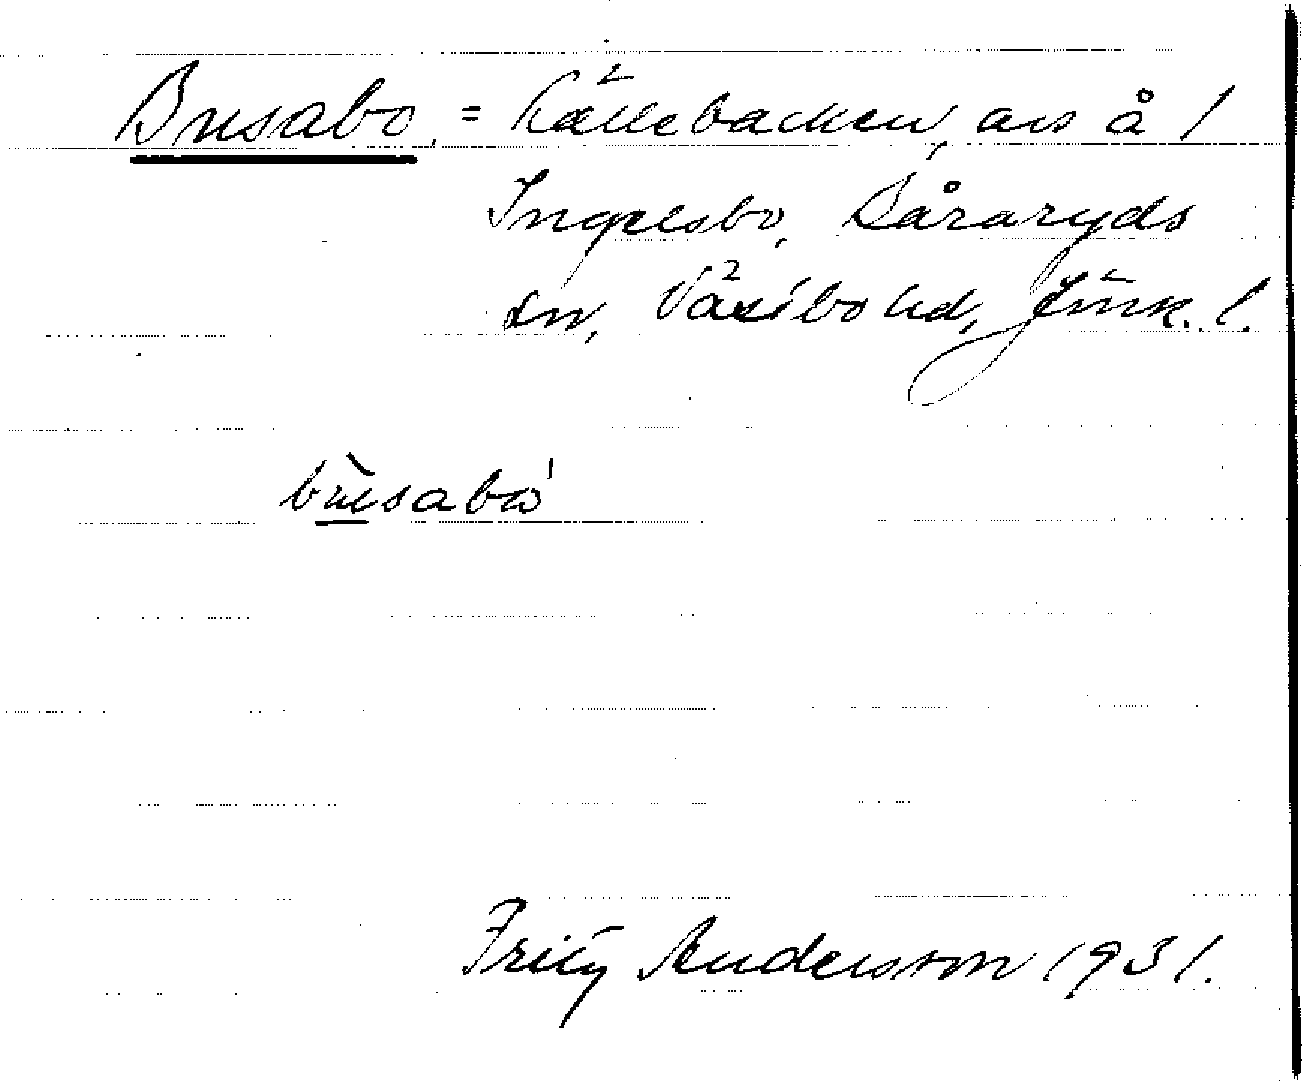 Busabo, = Källebacken, avs å 1
Ingelsbo, Båraryds
sn, Västbo hd, Jönk. l.
bu̲sabo
Fritz Andersson 1931.